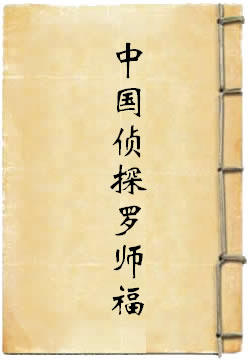 中国侦探罗师福